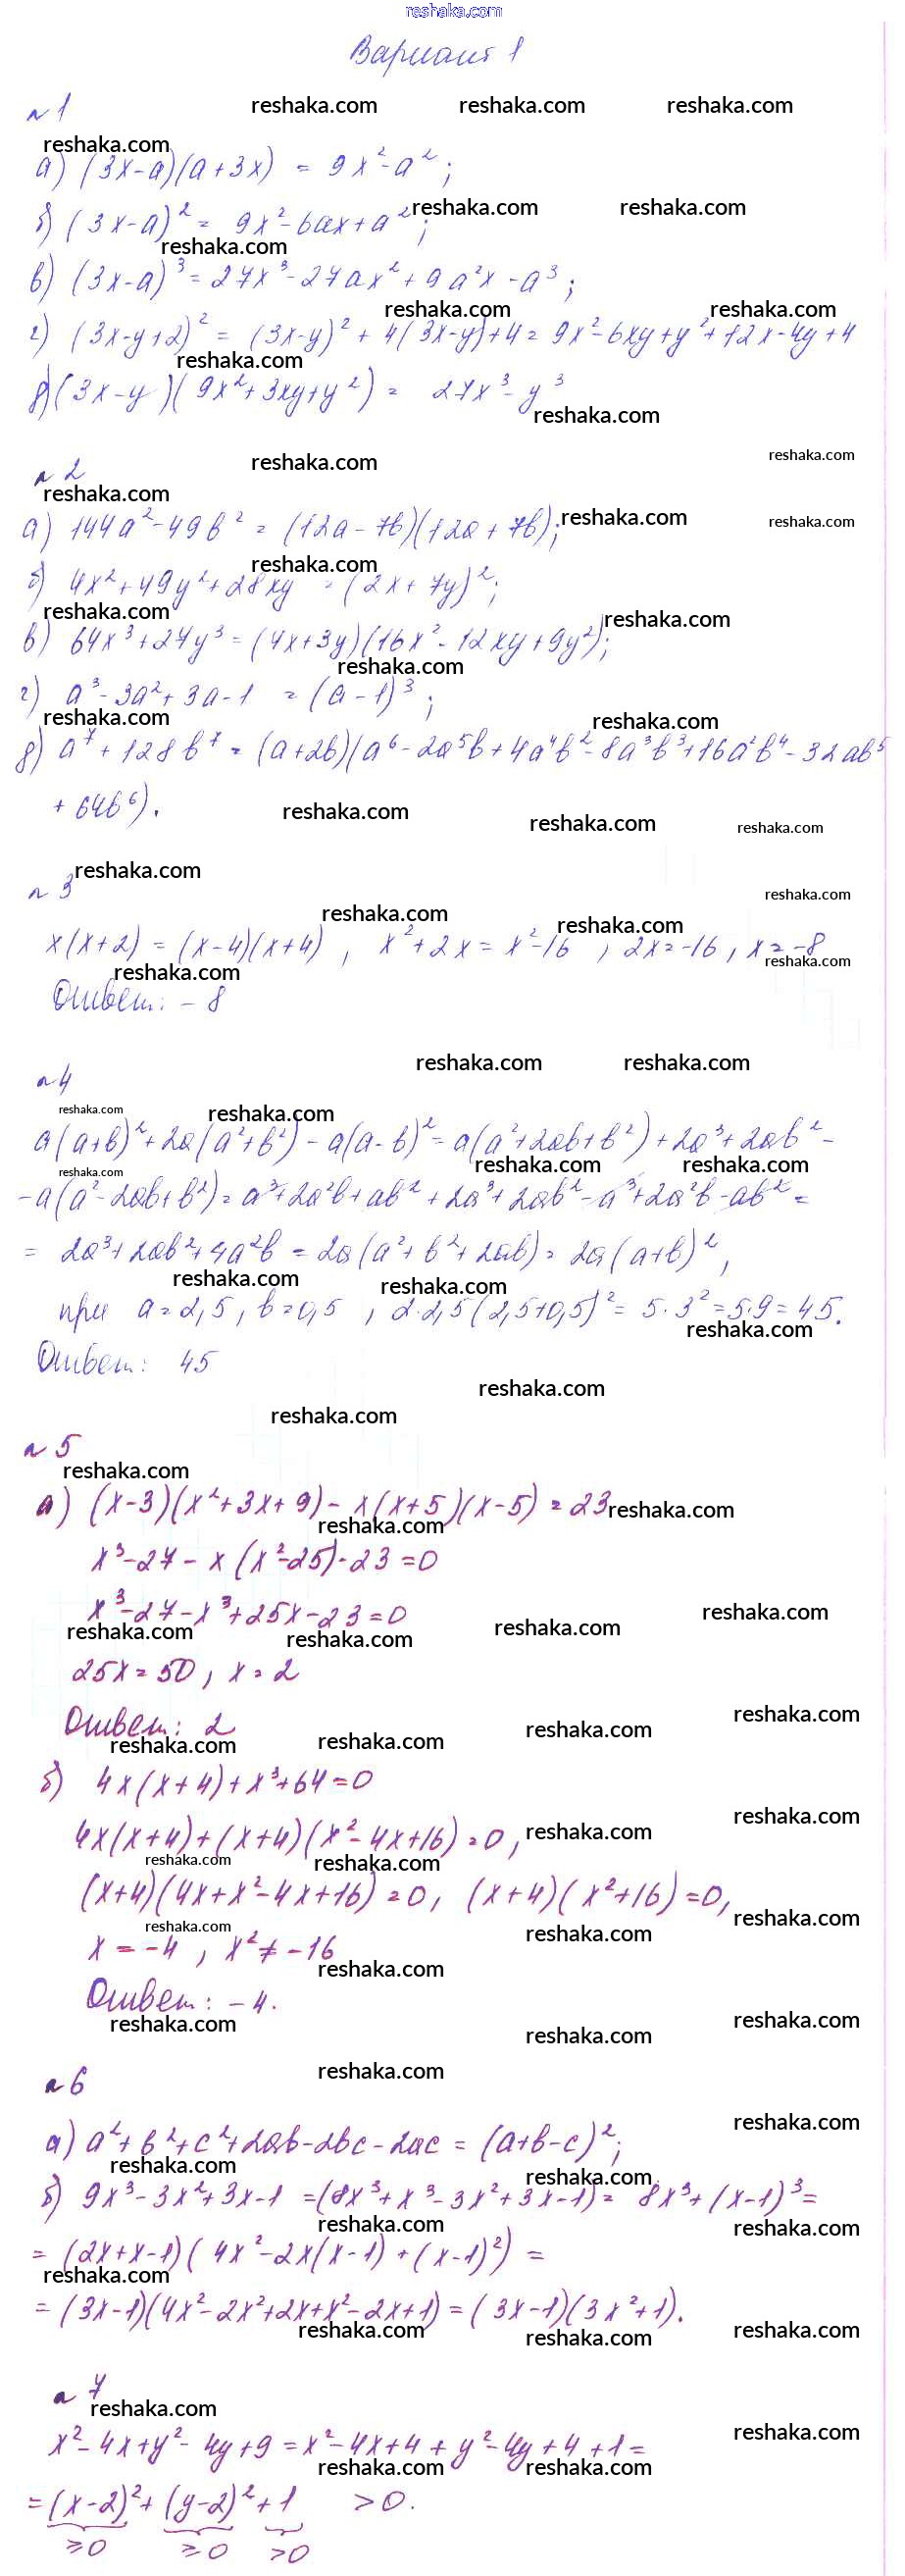 reshaka.com
Вариант 1
№ 1
reshaka.com reshaka.com reshaka.com
reshaka.com
а) (3x-a)(a+3x) = 9x²-a²;
reshaka.com reshaka.com
б) (3x-a)² = 9x²-6ax+a²;
reshaka.com
в) (3x-a)³ = 27x³-27ax²+9a²x-a³;
reshaka.com reshaka.com
г) (3x-y+2)² = (3x-y)²+4(3x-y)+4 = 9x²-6xy+y²+12x-4y+4
reshaka.com
д) (3x-y)(9x²+3xy+y²) = 27x³-y³
reshaka.com
№ 2
reshaka.com reshaka.com
reshaka.com
а) 144a²-49b² = (12a-7b)(12a+7b);
reshaka.com reshaka.com
reshaka.com
б) 4x²+49y²+28xy = (2x+7y)²;
reshaka.com reshaka.com
в) 64x³+27y³ = (4x+3y)(16x²-12xy+9y²);
reshaka.com
г) a³-3a²+3a-1 = (a-1)³;
reshaka.com reshaka.com
д) a⁷+128b⁷ = (a+2b)(a⁶-2a⁵b+4a⁴b²-8a³b³+16a²b⁴-32ab⁵
+64b⁶).
reshaka.com reshaka.com reshaka.com
reshaka.com
№ 3
reshaka.com
reshaka.com reshaka.com
x(x+2) = (x-4)(x+4), x²+2x = x²-16, 2x=-16, x=-8
reshaka.com reshaka.com
Ответ: -8
reshaka.com reshaka.com
№ 4
reshaka.com reshaka.com
a(a+b)²+2a(a²+b²)-a(a-b)² = a(a²+2ab+b²)+2a³+2ab²-
reshaka.com reshaka.com reshaka.com
-a(a²-2ab+b²) = a³+2a²b+ab²+2a³+2ab²-a³+2a²b-ab² =
= 2a³+2ab²+4a²b = 2a(a²+b²+2ab) = 2a(a+b)²,
reshaka.com reshaka.com
при a=2,5, b=0,5, 2·2,5(2,5+0,5)² = 5·3² = 5·9 = 45.
reshaka.com
Ответ: 45
reshaka.com
reshaka.com
№ 5
reshaka.com
а) (x-3)(x²+3x+9)-x(x+5)(x-5) = 23
reshaka.com
reshaka.com
x³-27-x(x²-25)-23=0
x³-27-x³+25x-23=0
reshaka.com reshaka.com reshaka.com reshaka.com
25x=50, x=2
Ответ: 2
reshaka.com reshaka.com reshaka.com reshaka.com
б) 4x(x+4)+x³+64=0
reshaka.com
4x(x+4)+(x+4)(x²-4x+16)=0,
reshaka.com
reshaka.com reshaka.com
(x+4)(4x+x²-4x+16)=0, (x+4)(x²+16)=0,
reshaka.com
reshaka.com reshaka.com
x=-4, x²≠-16
reshaka.com
Ответ: -4.
reshaka.com reshaka.com reshaka.com
№ 6
reshaka.com
reshaka.com
а) a²+b²+c²+2ab-2bc-2ac = (a+b-c)²;
reshaka.com reshaka.com
б) 9x³-3x²+3x-1 = (8x³+x³-3x²+3x-1) = 8x³+(x-1)³ =
reshaka.com reshaka.com
= (2x+x-1)(4x²-2x(x-1)+(x-1)²) =
reshaka.com
= (3x-1)(4x²-2x²+2x+x²-2x+1) = (3x-1)(3x²+1).
reshaka.com reshaka.com reshaka.com
№ 7
reshaka.com
reshaka.com
x²-4x+y²-4y+9 = x²-4x+4+y²-4y+4+1 =
reshaka.com reshaka.com
= (x-2)²+(y-2)²+1 >0.
≥0 ≥0 >0